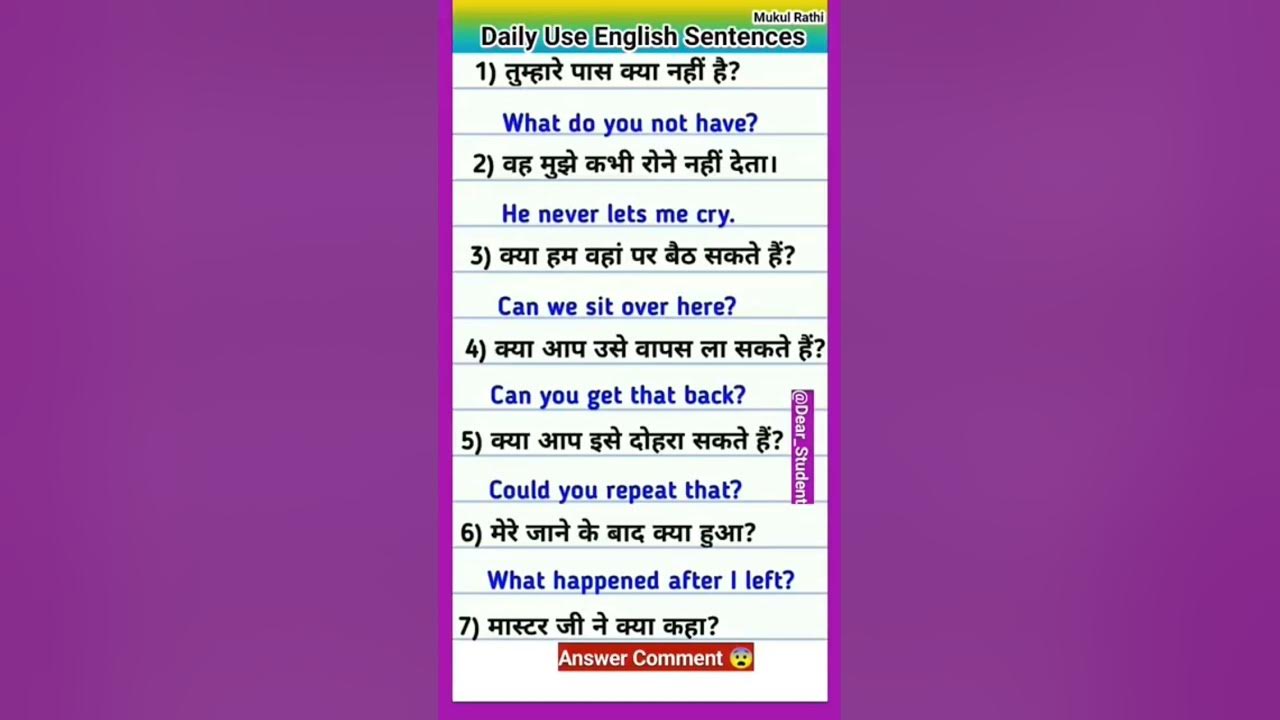 Mukul Rathi
Daily Use English Sentences
1) तुम्हारे पास क्या नहीं है?
What do you not have?
2) वह मुझे कभी रोने नहीं देता।
He never lets me cry.
3) क्या हम वहां पर बैठ सकते हैं?
Can we sit over here?
4) क्या आप उसे वापस ला सकते हैं?
Can you get that back?
@Dear_Student
5) क्या आप इसे दोहरा सकते हैं?
Could you repeat that?
6) मेरे जाने के बाद क्या हुआ?
What happened after I left?
7) मास्टर जी ने क्या कहा?
Answer Comment 😨